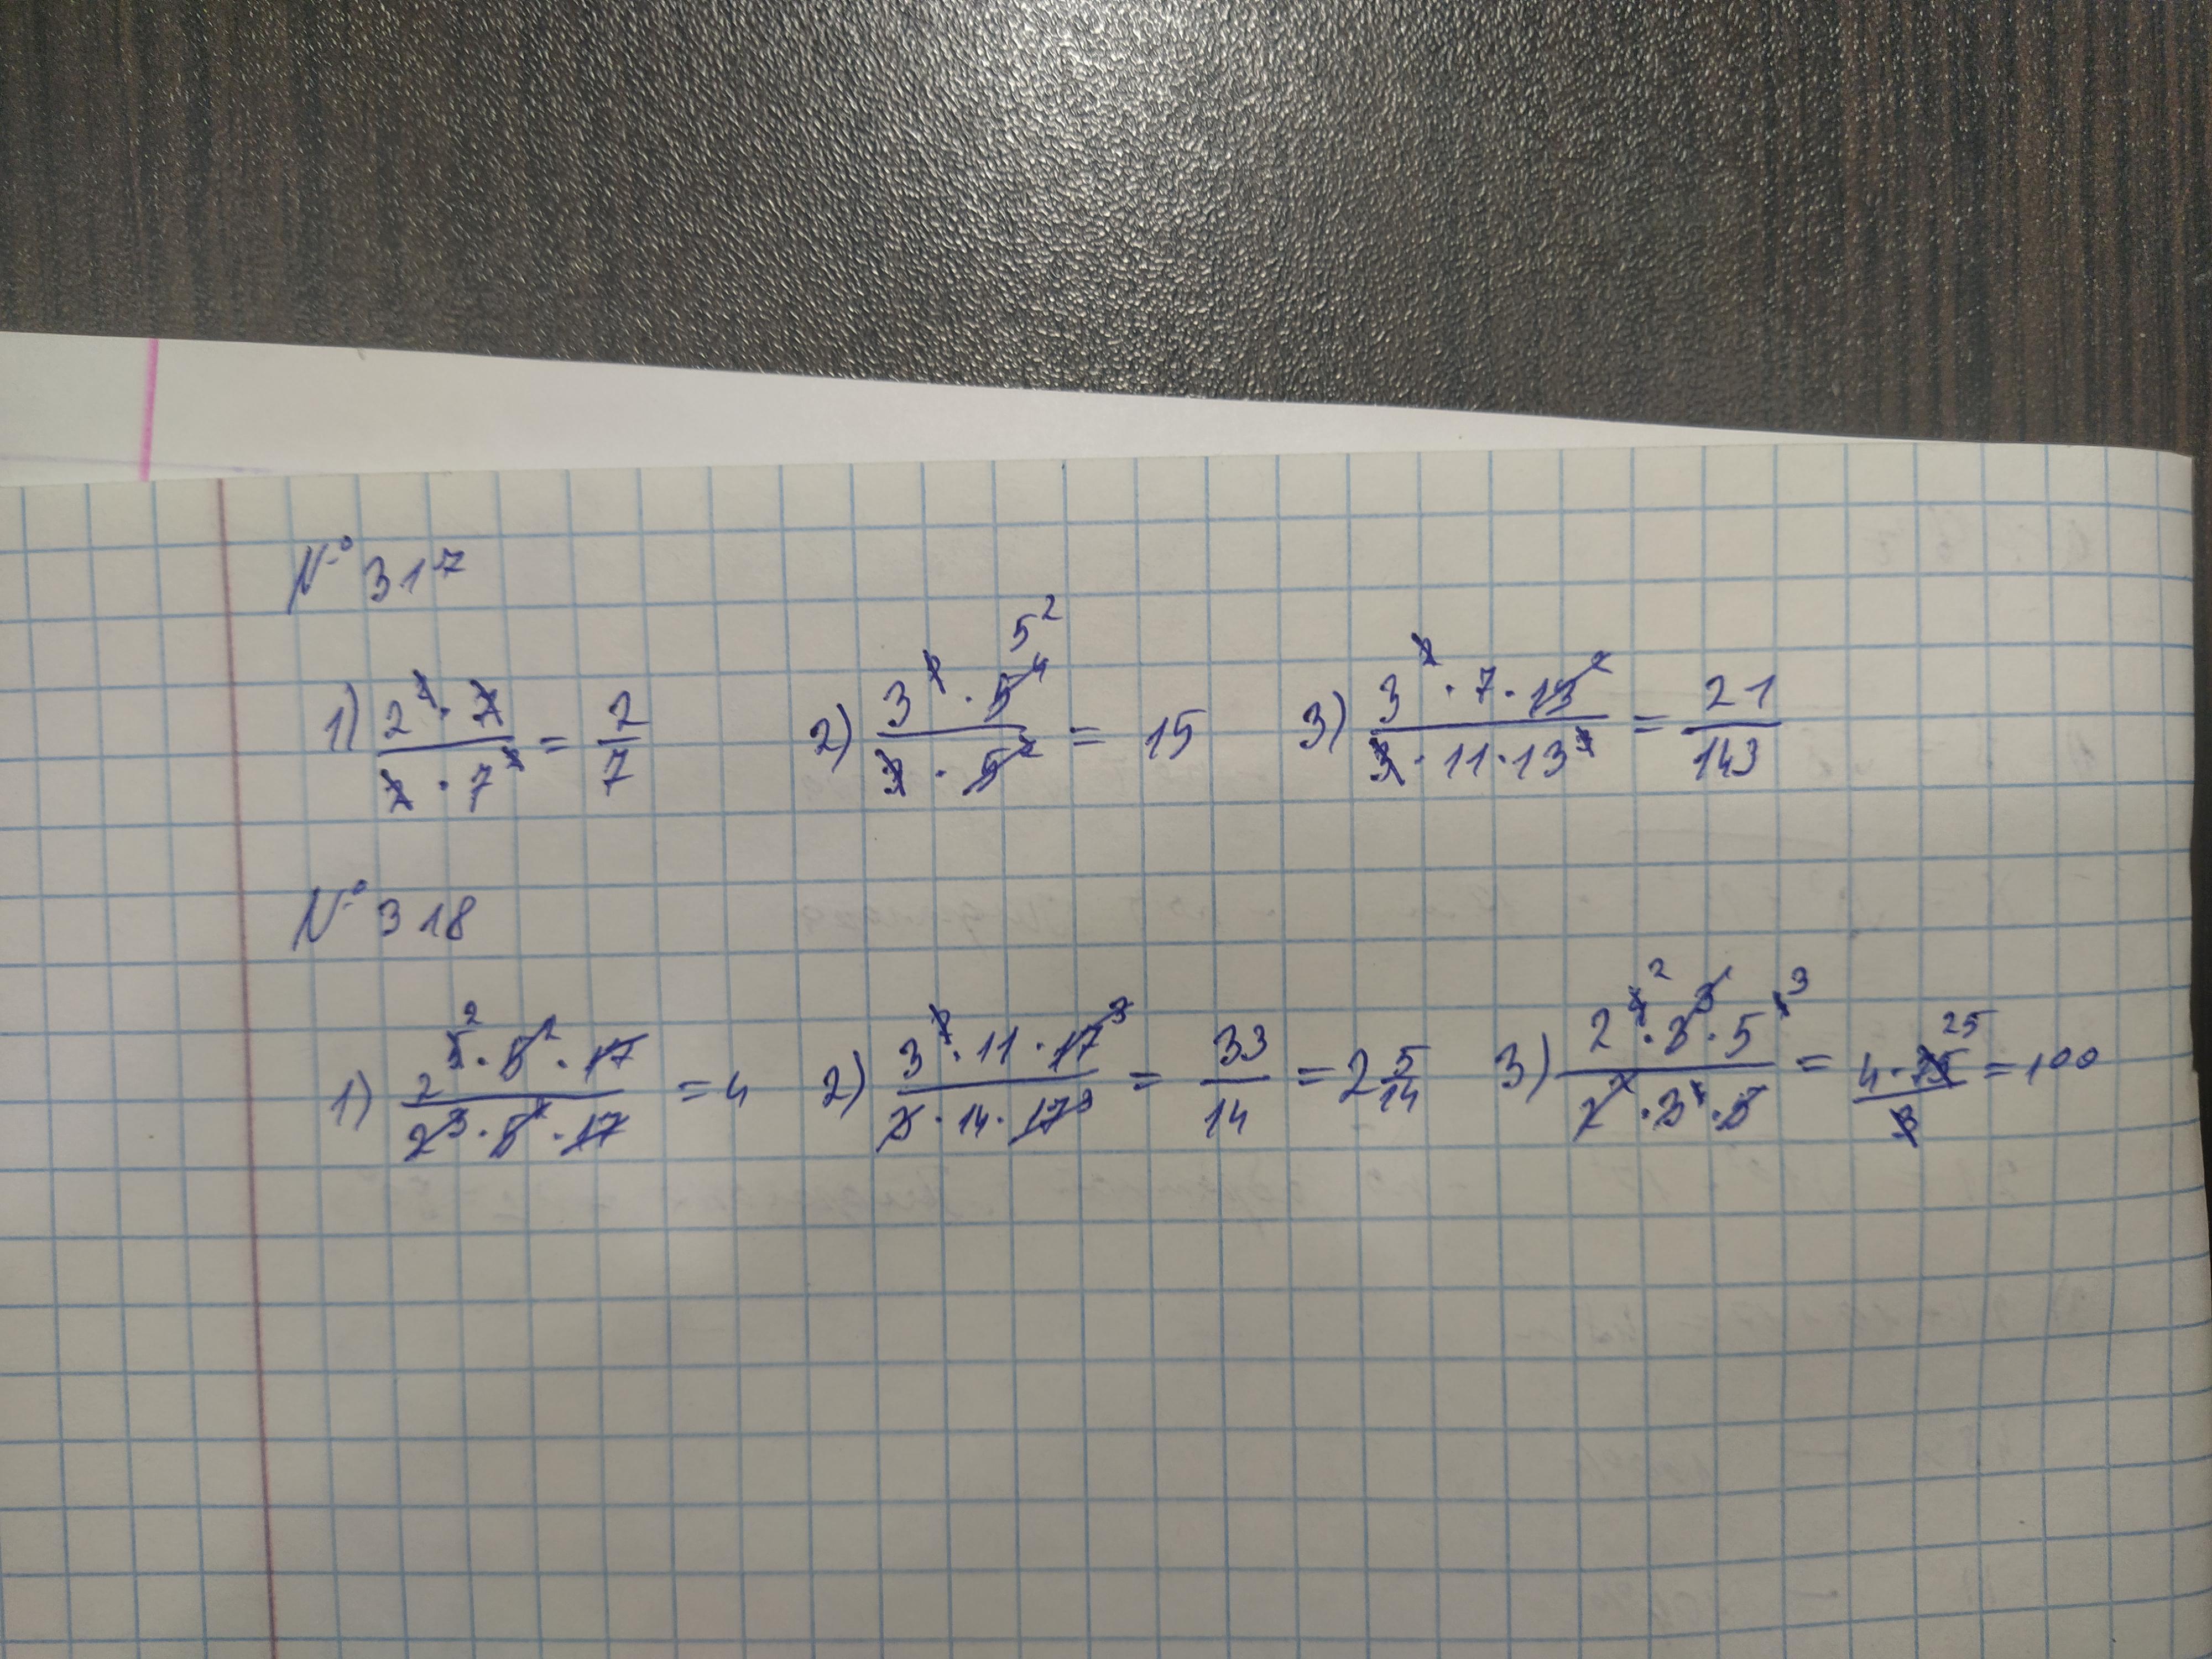 № 317
1) 2² · 7 / 2 · 7² = 2/7 2) 3² · 5⁴ 5² / 3 · 5² = 15 3) 3² · 7 · 13² / 3 · 11 · 13³ = 21/143
№ 318
1) 2⁵ ² · 5² · 17 / 2³ · 5² · 17 = 4 2) 3² · 11 · 17³ / 3 · 14 · 17³ = 33/14 = 2 5/14 3) 2⁴ ² · 3³ · 5⁴ ³ / 2² · 3⁴ · 5 = 4 · 75 25 / 3 = 100